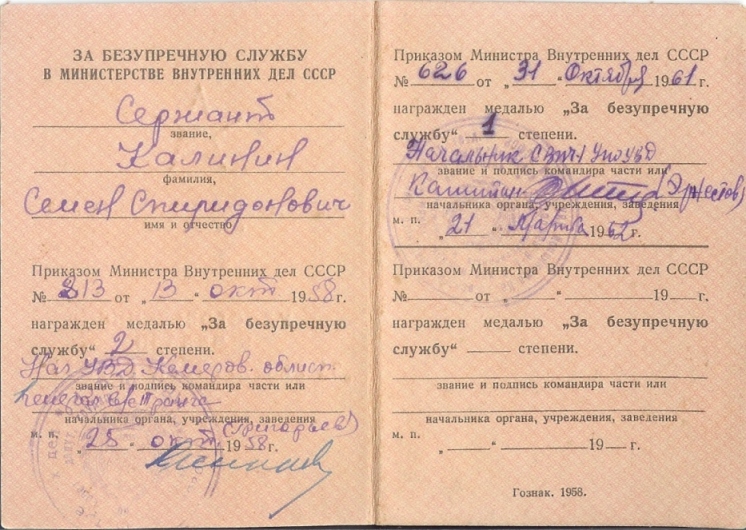 ЗА БЕЗУПРЕЧНУЮ СЛУЖБУ
В МИНИСТЕРСТВЕ ВНУТРЕННИХ ДЕЛ СССР
Сержант
звание,
Калинин
фамилия,
Семен Спиридонович
имя и отчество
Приказом Министра Внутренних дел СССР
№ 313 от „13“ окт 1958 г.
награжден медалью „За безупречную
службу“ 2 степени.
Нач УВД Кемеров. област.
звание и подпись командира части или
ранга
начальника органа, учреждения, заведения
(Григорьев)
м. п. „25“ окт. 1958 г.
Приказом Министра Внутренних дел СССР
№ 626 от „31“ Октября 1961 г.
награжден медалью „За безупречную
службу“ 1 степени.
Начальник
звание и подпись командира части или
Капитан
начальника органа, учреждения, заведения
м. п. „21“ Марта 1962 г.
Приказом Министра Внутренних дел СССР
№ от „ “ 19 г.
награжден медалью „За безупречную
службу“ степени.
звание и подпись командира части или
начальника органа, учреждения, заведения
м. п. „ “ 19 г.
Гознак. 1958.